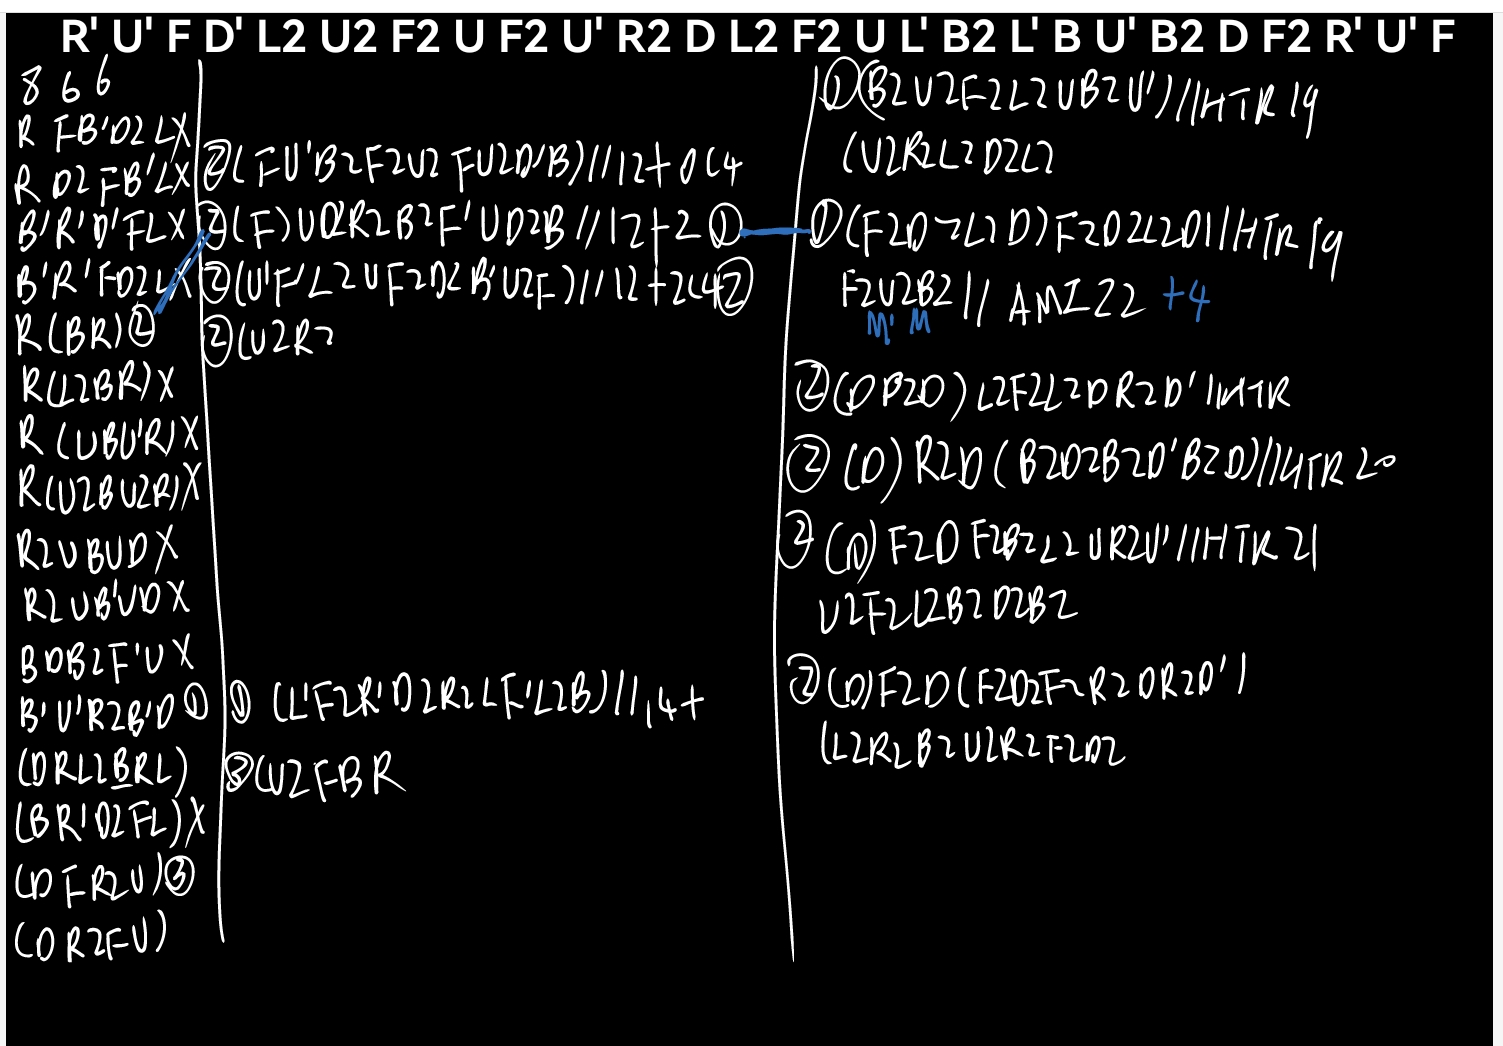 R' U' F D' L2 U2 F2 U F2 U' R2 D L2 F2 U L' B2 L' B U' B2 D F2 R' U' F
8 6 6
R FB'D2 LX
R D2 FB'LX
B'R'D'FLX
B'R'FD2LX
R(BR)②
R(L2BR)X
R(UBU'R)X
R(U2BU2R)X
R2UBUDX
R2UB'UDX
BDB2F'UX
B'U'R2B'D①
(DRL2BRL)
(BR'D2FL)X
(DFR2U)③
(DR2FU)
②(FU'B2F2U2FU2D'B)//12+0C4
②(F)UD2R2B2F'UD2B//12+2①
②(U'F'L2UF2D2B'U2F)//12+2C4②
②(U2R2
①(L'F2R'D2R2LF'L2B)//14+
③(U2FBR
①(B2U2F2L2UB2U')//HTR19
(U2R2L2D2L2
①(F2D2L2D)F2D2L2D1//HTR19
F2U2B2//AMI22 +4
M' M
②(DB2D)L2F2L2DR2D'//HTR
②(D)R2D(B2D2B2D'B2D)//HTR20
②(D)F2DF2B2L2UR2U'//HTR21
U2F2L2B2D2B2
②(D)F2D(F2D2F2R2DR2D'/
(L2R2B2U2R2F2D2